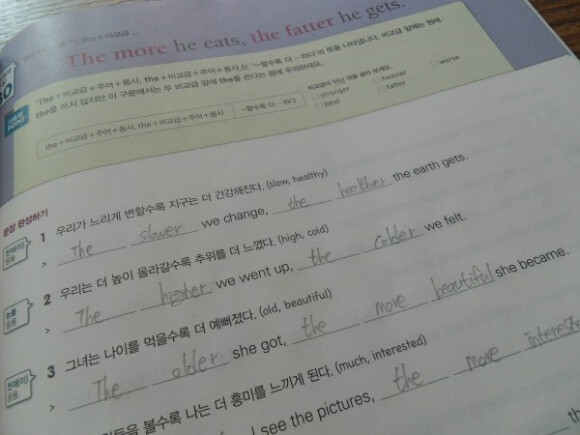 The more he eats, the fatter he gets.
「The+비교급+주어+동사, the+비교급+주어+동사」는 '~할수록 더 …하다'의 뜻을 나타냅니다. 비교급 앞에는 원래
the를 쓰지 않지만 이 구문에서는 두 비교급 앞에 the를 쓴다는 점에 주의하세요.
the+비교급+주어+동사, the+비교급+주어+동사 ~할수록 더 …하다
비교급이 아닌 것을 골라 보세요.
stronger heavier worse
best fatter
문장 완성하기
1 우리가 느리게 변할수록 지구는 더 건강해진다. (slow, healthy)
> The slower we change, the healthier the earth gets.
2 우리는 더 높이 올라갈수록 추위를 더 느꼈다. (high, cold)
> The higher we went up, the colder we felt.
3 그녀는 나이를 먹을수록 더 예뻐졌다. (old, beautiful)
> The older she got, the more beautiful she became.
볼수록 나는 더 흥미를 느끼게 된다. (much, interested)
I see the pictures, the more